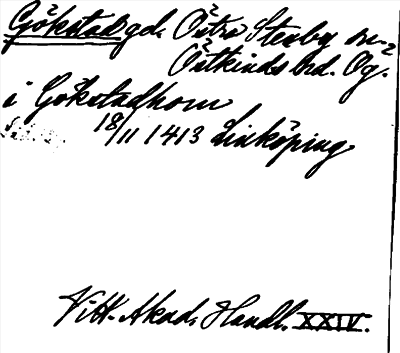 Gökstad gd. Östra Stenby sn.
Östkinds hd. Ög.
i Gökstadhom
18/11 1413 Linköping
Vitt. Akad. Handl. XXIV.